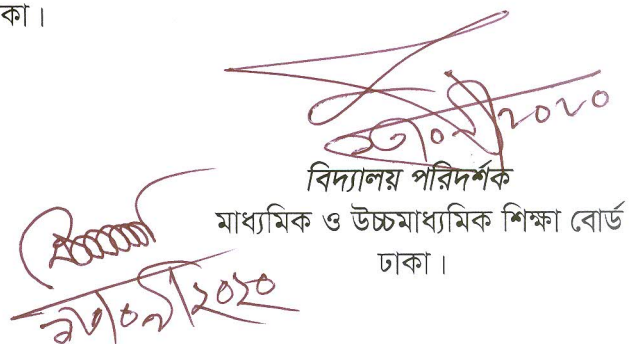 কা।
২০২০
বিদ্যালয় পরিদর্শক
মাধ্যমিক ও উচ্চমাধ্যমিক শিক্ষা বোর্ড
ঢাকা।
২০২০